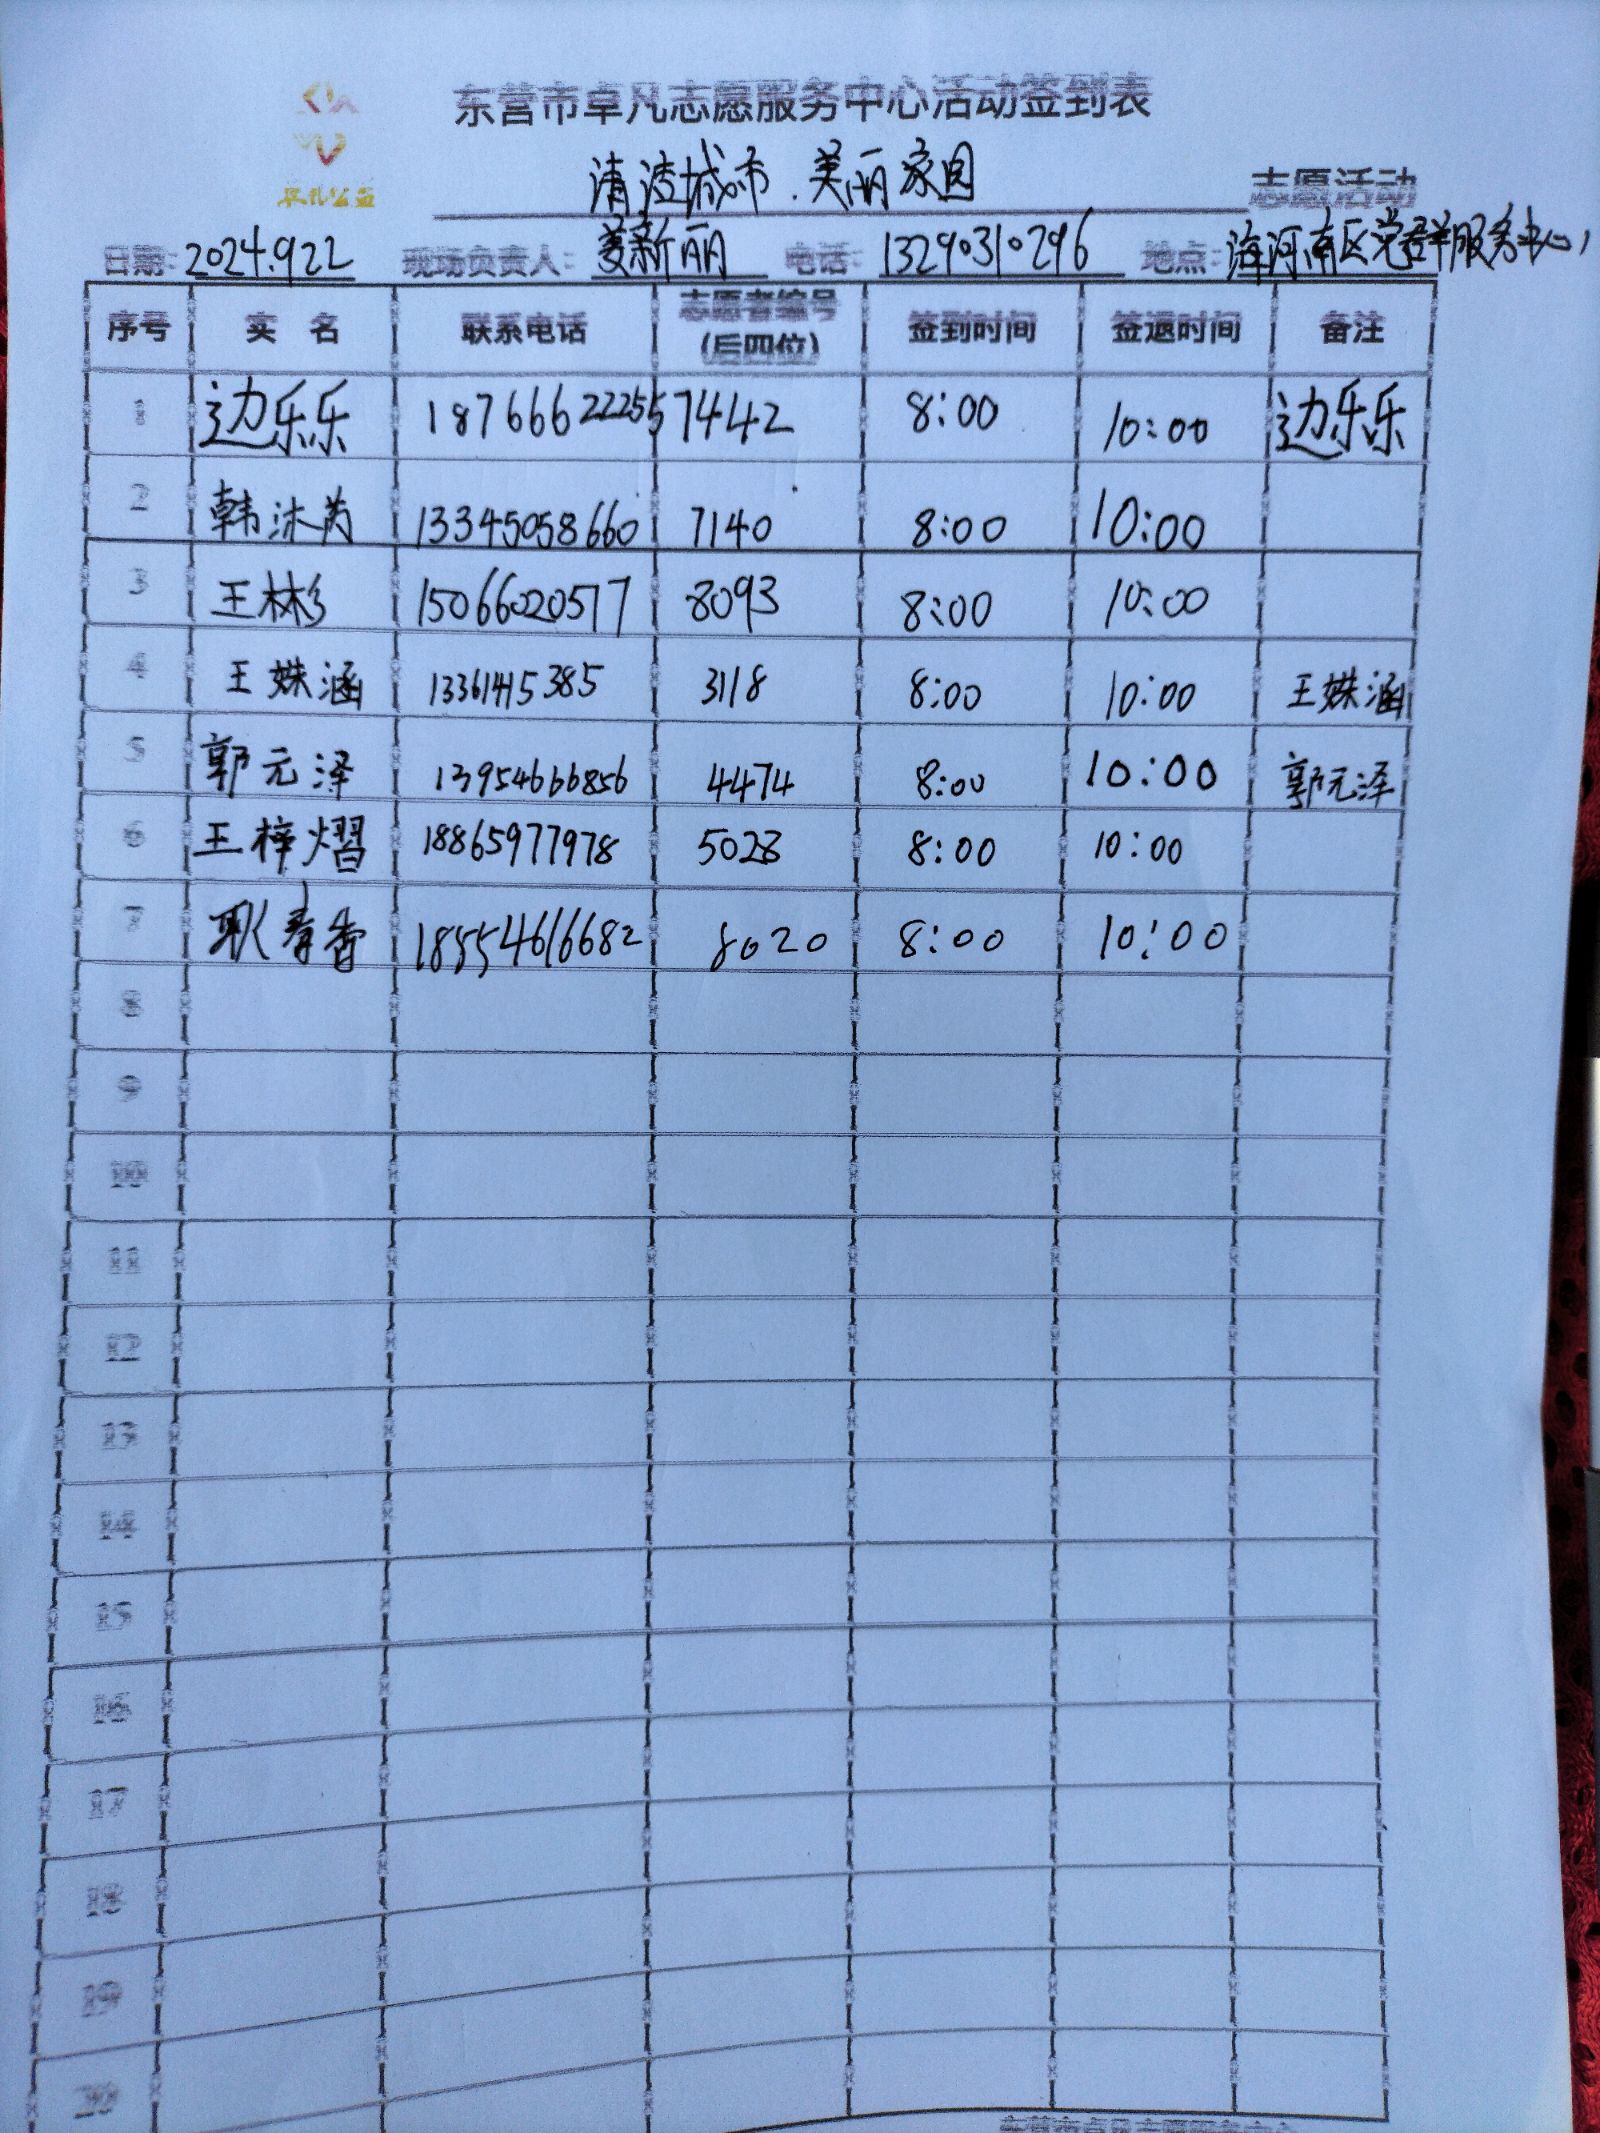 东营市卓凡志愿服务中心活动签到表
卓凡公益
清洁城市.美丽家园 志愿活动
日期: 2024.9.22 现场负责人: 姜新丽 电话: 13290310296 地点: 海河南区党群服务中心
序号 实 名 联系电话 志愿者编号(后四位) 签到时间 签退时间 备注
1 边乐乐 18766622255 7442 8:00 10:00 边乐乐
2 韩沐芮 13345058660 7140 8:00 10:00
3 王彬 15066020517 8093 8:00 10:00
4 王姝涵 3118 8:00 10:00 王姝涵
5 郭元泽 13954666856 4474 8:00 10:00 郭元泽
6 王梓熠 18865977978 5028 8:00 10:00
7 耿青香 18554616682 8020 8:00 10:00
8
9
10
11
12
13
14
15
16
17
18
19
20
东营市卓凡志愿服务中心